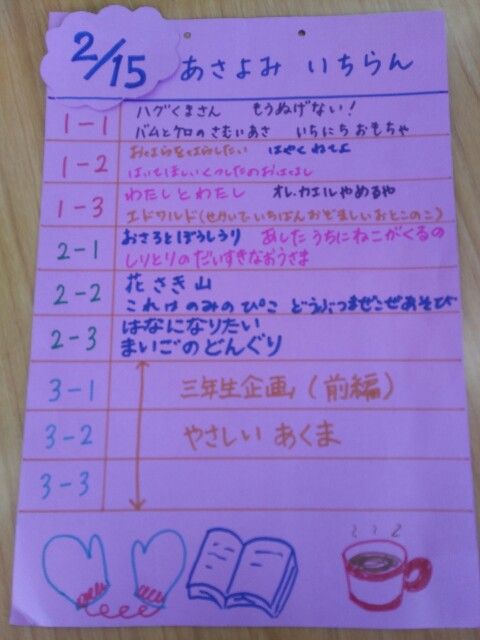 2/15
あさよみ いちらん
1-1
ハグくまさん もうぬげない!
バムとケロのさむいあさ いちにちおもちゃ
1-2
おならをならしたい はやくねてよ
1-3
わたしとわたし オレ、カエルやめるや
エドワルド(せかいでいちばんおぞましいおとこのこ)
2-1
おさるとぼうしうり あしたうちにねこがくるの
しりとりのだいすきなおうさま
2-2
花さき山
これはのみのぴこ どうぶつまぜこぜあそび
2-3
はなになりたい
まいごのどんぐり
3-1
三年生企画(前編)
3-2
やさしい あくま
3-3